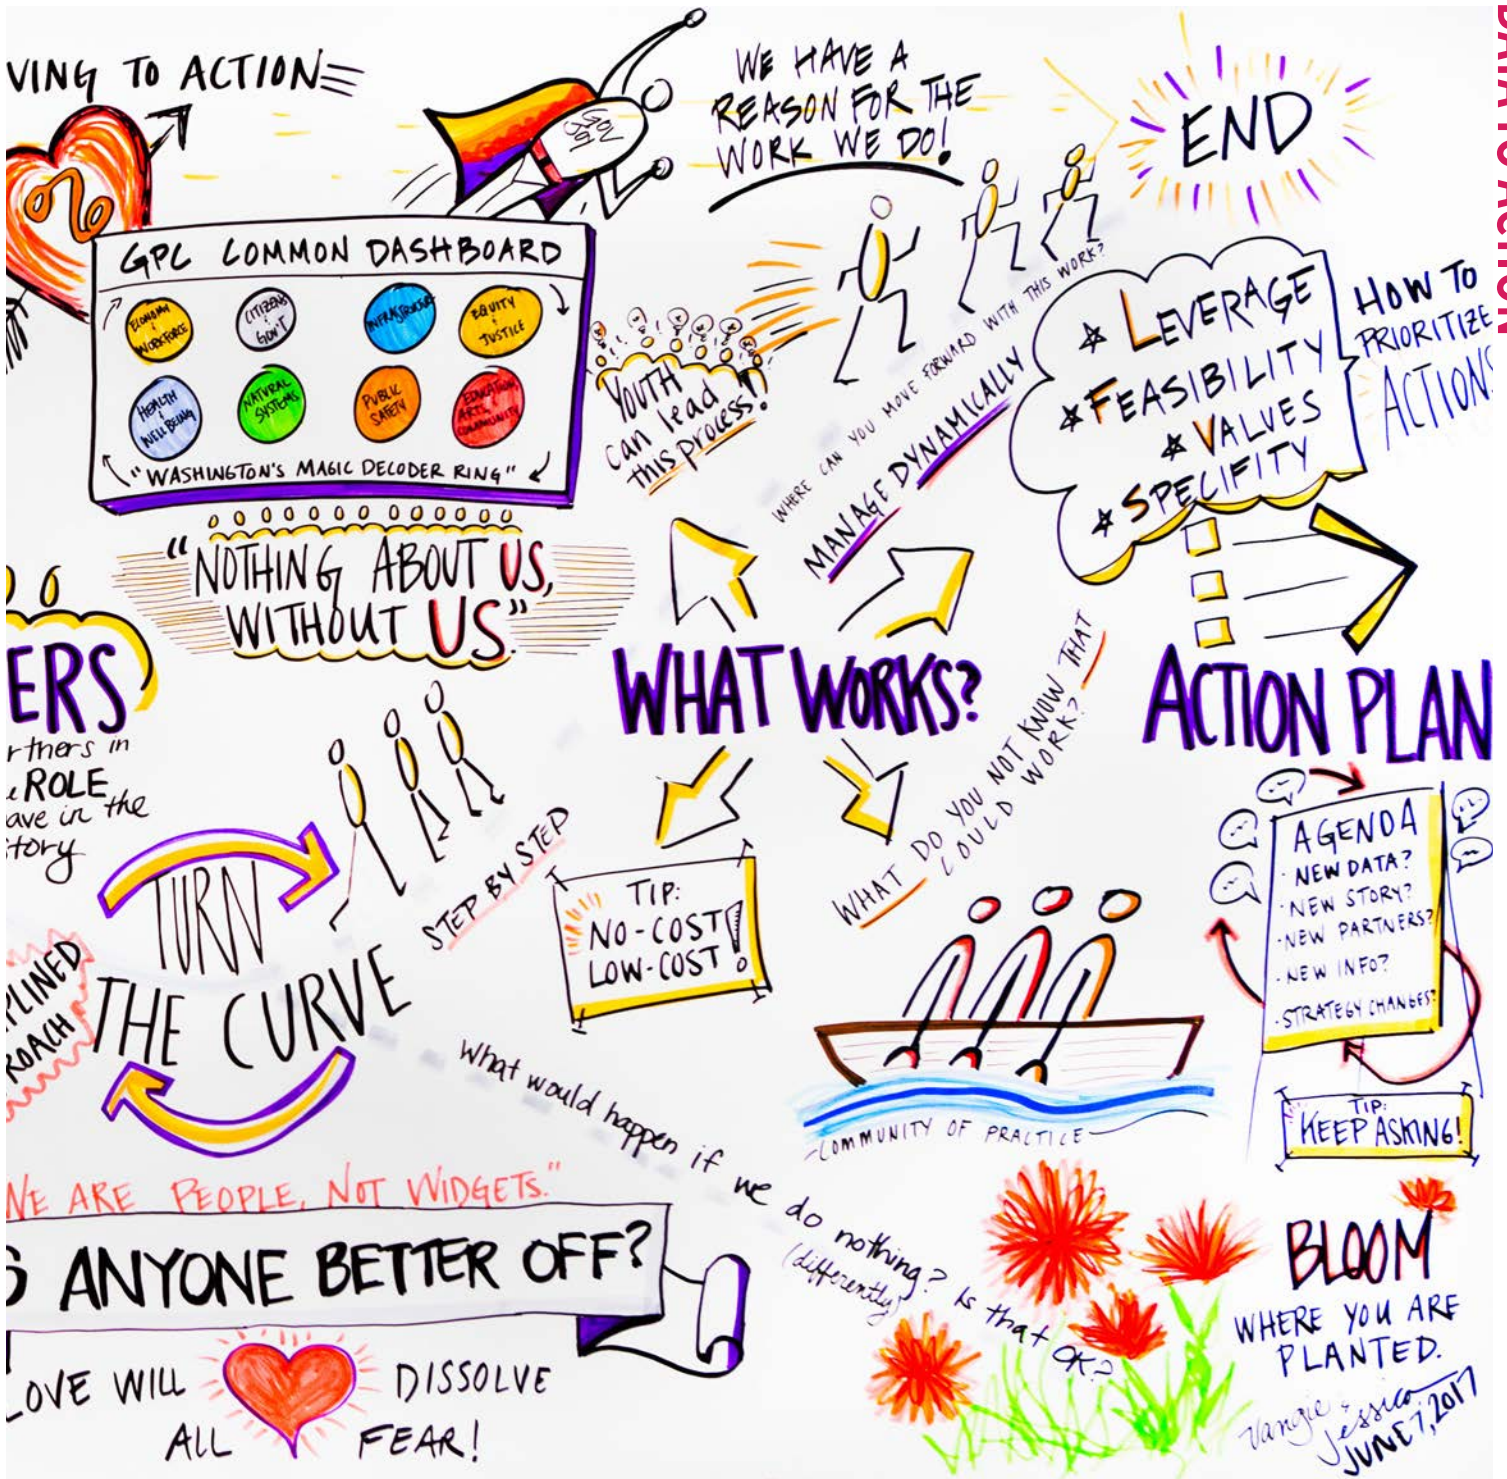 VING TO ACTION
GOV
GPC COMMON DASHBOARD
ECONOMY & WORKFORCE
CITIZENS & GOV'T
INFRASTRUCTURE
EQUITY & JUSTICE
HEALTH & WELL BEING
NATURAL SYSTEMS
PUBLIC SAFETY
EDUCATION, ARTS, COMMUNITY
"WASHINGTON'S MAGIC DECODER RING"
WE HAVE A
REASON FOR THE
WORK WE DO!
END
DATA TO ACTION
YOUTH
can lead
this process!
WHERE CAN YOU MOVE FORWARD WITH THIS WORK?
MANAGE DYNAMICALLY
LEVERAGE
FEASIBILITY
VALUES
SPECIFITY
HOW TO
PRIORITIZE
ACTIONS
"NOTHING ABOUT US,
WITHOUT US."
ERS
rthers in
ROLE
ave in the
tory
WHAT WORKS?
WHAT DO YOU NOT KNOW THAT
COULD WORK?
ACTION PLAN
TURN
THE CURVE
STEP BY STEP
PLINED
ROACH
TIP:
NO-COST
LOW-COST!
COMMUNITY OF PRACTICE
AGENDA
· NEW DATA?
· NEW STORY?
· NEW PARTNERS?
· NEW INFO?
· STRATEGY CHANGES?
TIP:
KEEP ASKING!
What would happen if we do nothing? Is that OK?
(differently)
WE ARE PEOPLE, NOT WIDGETS."
S ANYONE BETTER OFF?
OVE WILL DISSOLVE
ALL FEAR!
BLOOM
WHERE YOU ARE
PLANTED.
Vangie &
Jessica
JUNE 7, 2017